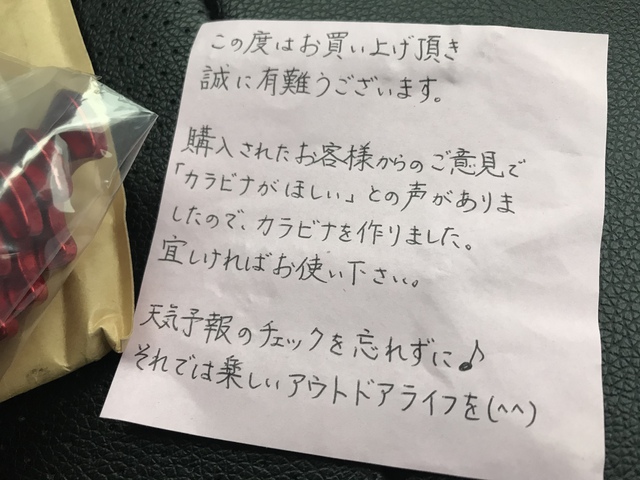 この度はお買い上げ頂き
誠に有難うございます。
購入されたお客様からのご意見で
「カラビナがほしい」との声がありま
したので、カラビナを作りました。
宜しければお使い下さい。
天気予報のチェックを忘れずに♪
それでは楽しいアウトドアライフを(^^)